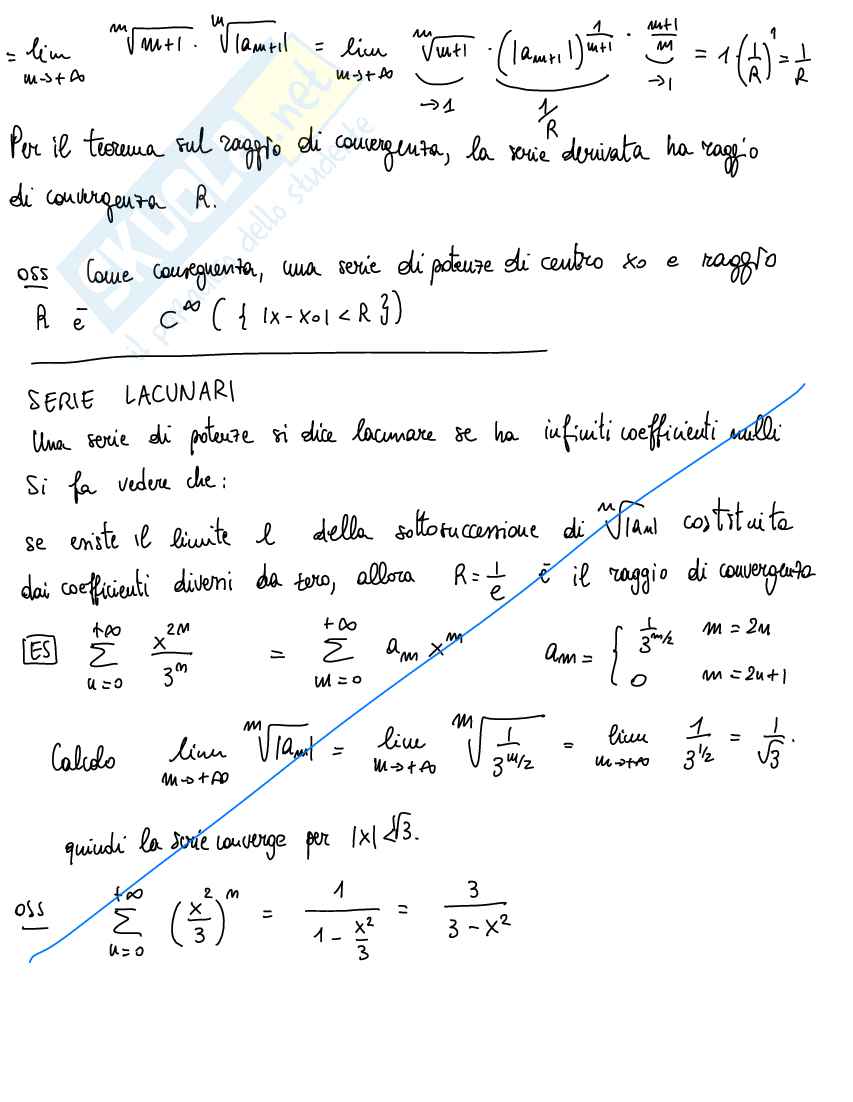 = lim_{m→+∞} ᵐ√(m+1) · ᵐ√|a_{m+1}| = lim_{m→+∞} ᵐ√(m+1) · (|a_{m+1}|)^{1/(m+1) · (m+1)/m} = 1·(1/R)¹ = 1/R
→1 1/R →1
Per il teorema sul raggio di convergenza, la serie derivata ha raggio
di convergenza R.
OSS Come conseguenza, una serie di potenze di centro x₀ e raggio
R è C^∞ ({ |x-x₀| < R })
SERIE LACUNARI
Una serie di potenze si dice lacunare se ha infiniti coefficienti nulli
Si fa vedere che:
se esiste il limite l della sottosuccessione di ᵐ√|aₘ| costituita
dai coefficienti diversi da zero, allora R = 1/l è il raggio di convergenza
ES ∑_{n=0}^{+∞} x^{2n}/3^n = ∑_{m=0}^{+∞} a_m x^m a_m = { 1/3^{m/2} m = 2n
0 m = 2n+1
Calcolo lim_{m→+∞} ᵐ√|a_m| = lim_{m→+∞} ᵐ√(1/3^{m/2}) = lim_{m→+∞} 1/3^{1/2} = 1/√3.
quindi la serie converge per |x| < √3.
OSS ∑_{n=0}^{+∞} (x²/3)^n = 1/(1 - x²/3) = 3/(3 - x²)
SKUOLA.net
il paradiso dello studente